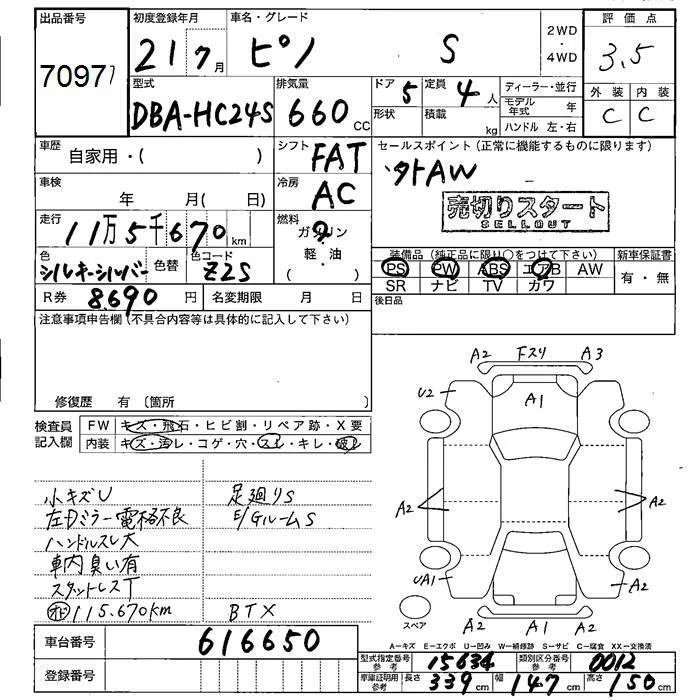 出品番号 初度登録年月 車名・グレード 評価点
7097 21 7月 ピノ S 2WD・4WD 3.5
外装 内装
C C
型式 排気量 ドア 定員 ディーラー・並行
DBA-HC24S 660CC 5 4人 モデル年式 年
形状 積載 kg ハンドル 左・右
車歴 自家用・( ) シフト FAT セールスポイント(正常に機能するものに限ります)
外AW
車検 年 月( 日) 冷房 AC
売切りスタート
SELLOUT
走行 11万5千670km 燃料 ガソリン・軽油 ( )
色 シルキーシルバー 色替 色コード Z2S
装備品(純正品に限り○をつけて下さい) 新車保証書
PS PW ABS エアB AW 有・無
SR ナビ TV カワ
R券 8,690円 名変期限 月 日 後日品
注意事項申告欄(不具合内容等は具体的に記入して下さい)
修復歴 有 〔箇所
検査員記入欄 FW キズ・飛石・ヒビ割・リペア跡・X要
内装 キズ・汚レ・コゲ・穴・スレ・キレ・破レ
小キズU 足廻りS
左Dミラー電格不良 E/GルームS
ハンドルスレ大
車内臭い有
スタットレスT
オド 115,670km BTX
A2 Fスリ A3
U2 A1
A2 A2
UA1 A2
スペア
A2 A1 A2
A=キズ E=エクボ U=凹み W=補修跡 S=サビ C=腐食 XX=交換済
車台番号 616650
型式指定番号 参考 15634 類別区分番号 参考 0012
登録番号
車庫証明用 参考 長さ 339cm 幅 147cm 高さ 150cm